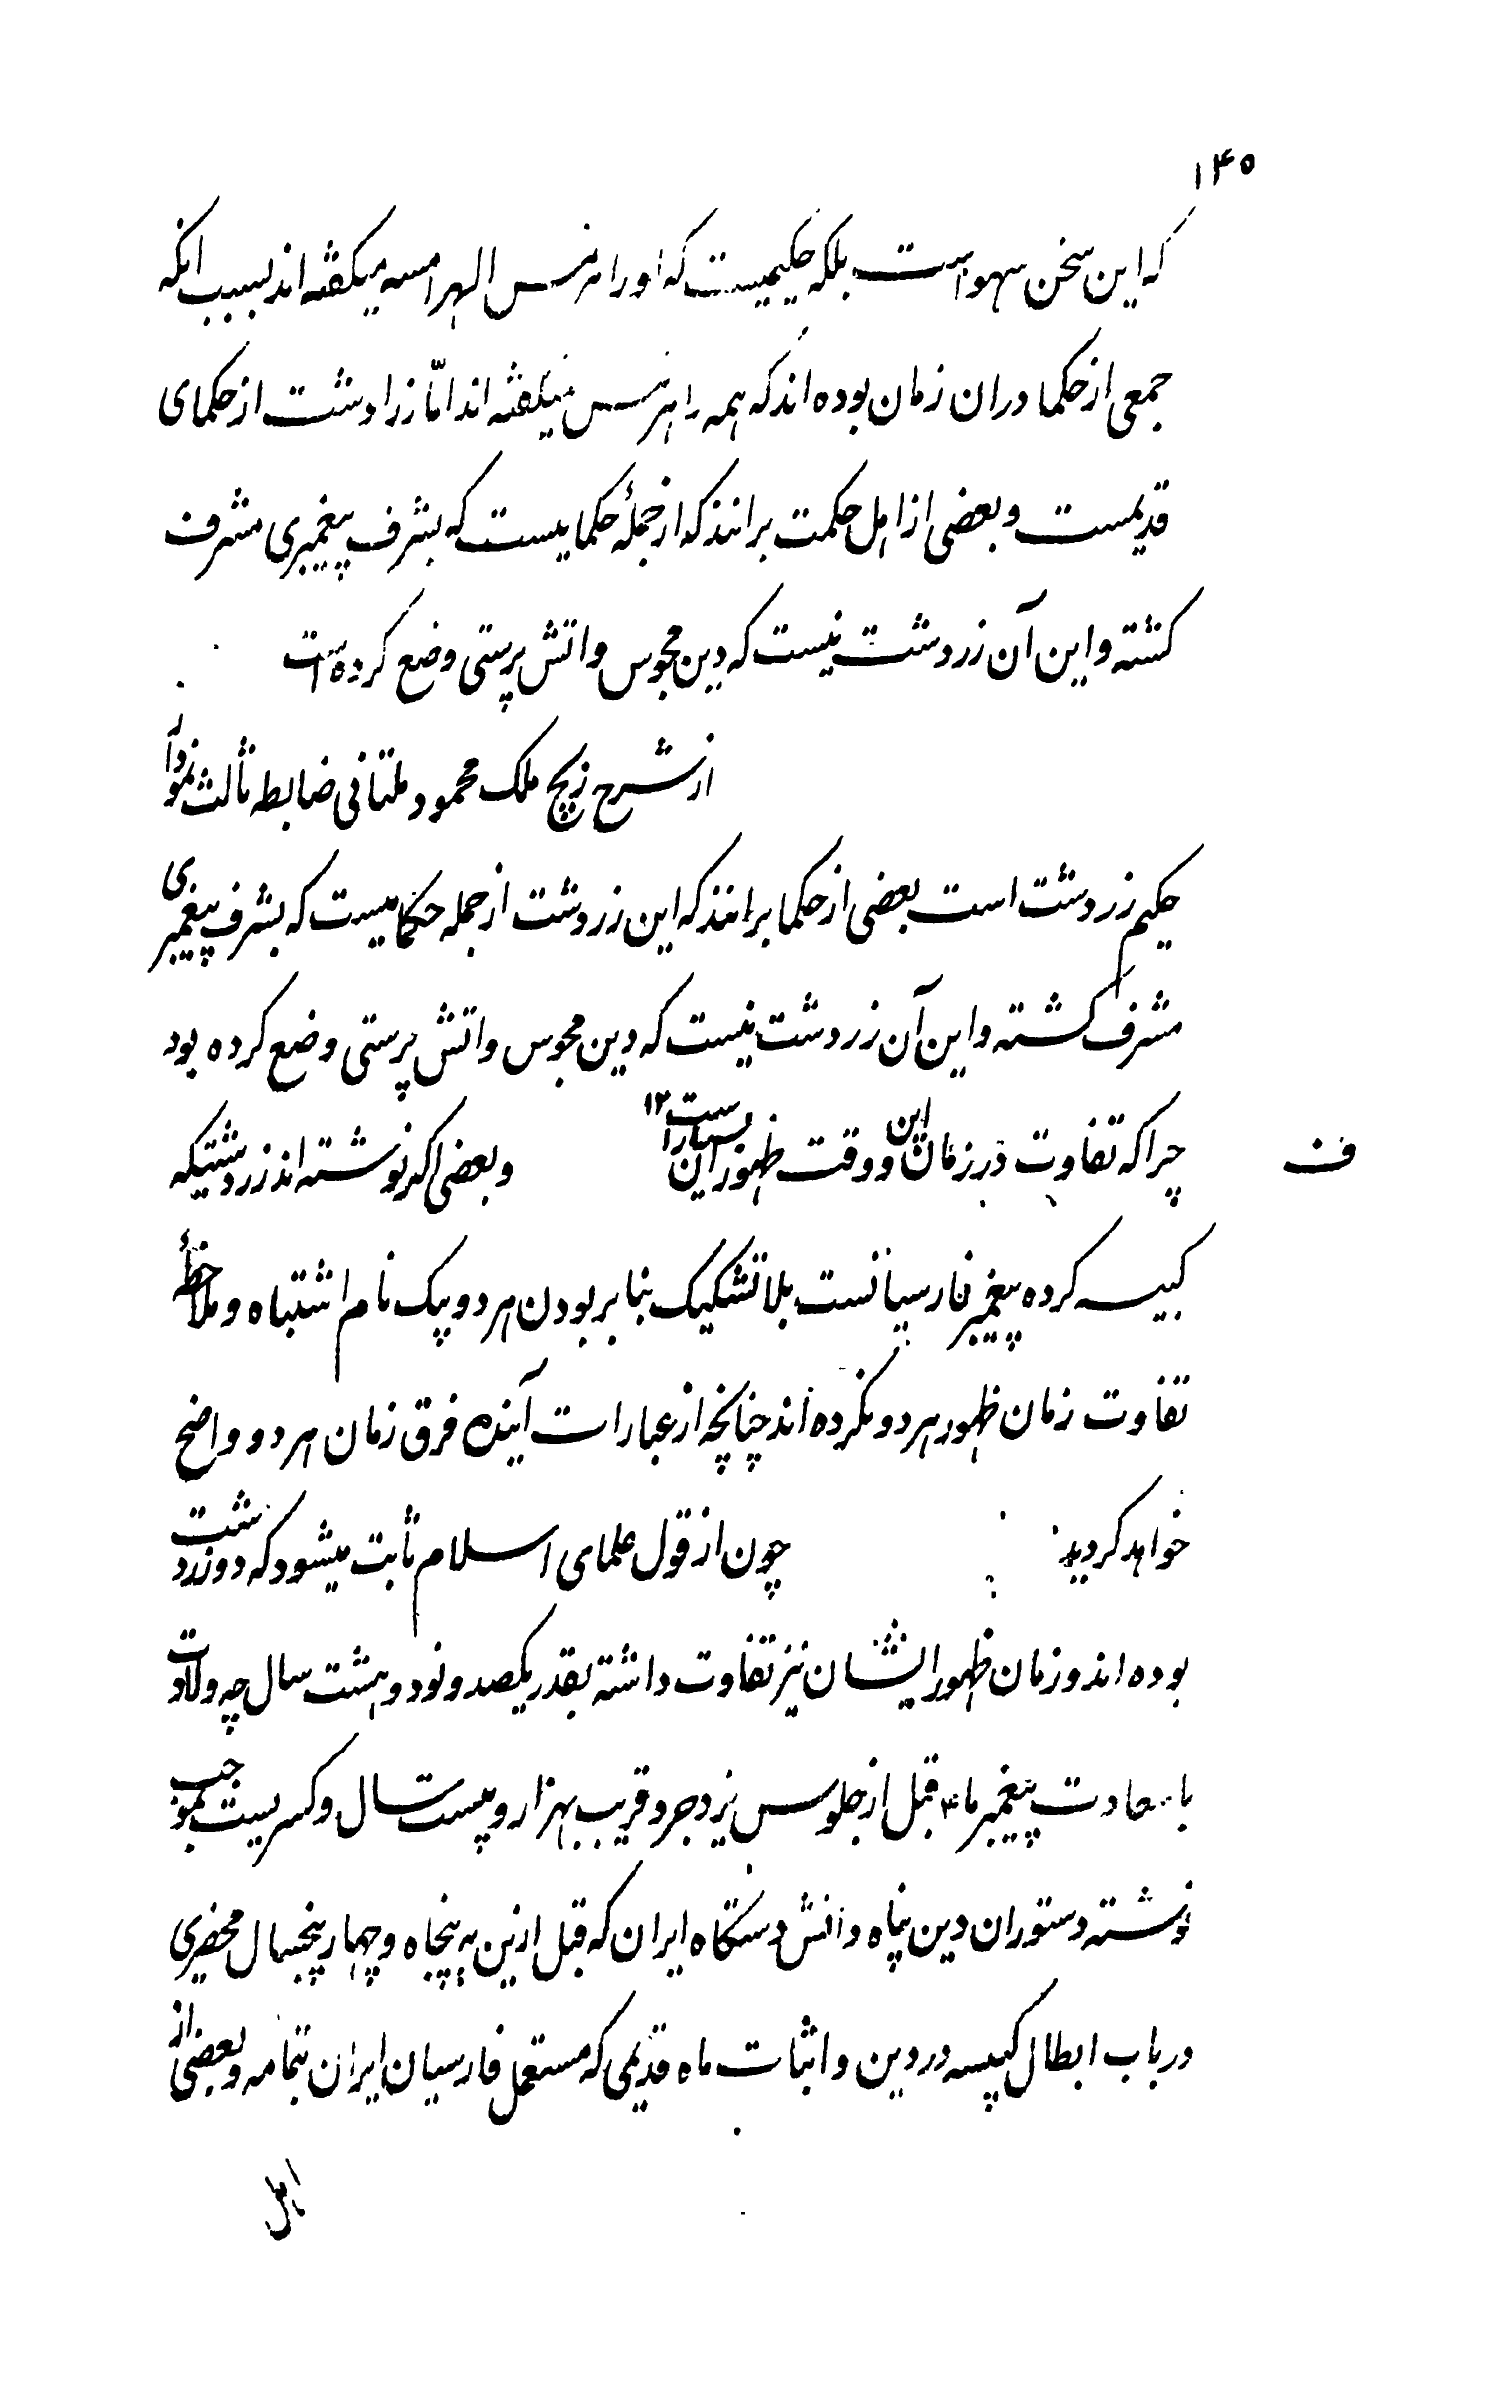 ۱۴۵
که این سخن سهو است بلکه حکیمیست که او را هرمس الهرامسه میگفته اند بسبب انکه
جمعی از حکما دران زمان بوده اند که همه را هرمس میگفته اند امّا زرادشت از حکمای
قدیمست و بعضی از اهل حکمت برانند که از جملهٔ حکماییست که بشرف پیغمبری مشرف
کشته و این آن زردشت نیست که دین مجوس و اتش پرستی وضع کرده است
از شرح زیچ ملک محمود ملتانی ضابطه ثالث نمودار
حکیم زردشت است بعضی از حکما برانند که این زردشت از جمله حکماییست که بشرف پیغمبری
مشرف کشته و این آن زردشت نیست که دین مجوس و اتش پرستی وضع کرده بود
ف چرا که تفاوت در زمان این و وقت ظهور آن بسیار است ۱۲ و بعضی اکر نوشته اند زردشتیکه
کبیسه کرده پیغمبر فارسیانست بلا تشکیک بنا بر بودن هر دو بیک نام اشتباه و ملاحظهٔ
تفاوت زمان ظهور هر دو نکرده اند چنانچه از عبارات آینده فرق زمان هر دو واضح
خواهد کردید چون از قول علمای اسلام ثابت میشود که دو زردشت
بوده اند و زمان ظهور ایشان نیز تفاوت داشته بقدر یکصد و نود و هشت سال چه ولادت
با سعادت پیغمبر ما قبل از جلوس یزدجرد قریب بهزار و بیست سال و کسریست بموجب
نوشته دستوران دین پناه دانش دستکاه ایران که قبل ازین به پنجاه و چهار پنجسال محضری
در باب ابطال کبیسه در دین و اثبات ماه قدیمی که مستعمل فارسیان ایران بتمامه و بعضی از
اهل